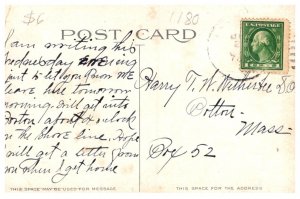 $6
1180
POST CARD
I am writing this
Wednesday evening
just to let you know we
leave here tomorrow
morning. will get into
Boston about 2 o'clock
on the Shore line. Hope
will get a letter from
you when I get home
Harry T. W.
Potton
Mass-
Box 52
THIS SPACE MAY BE USED FOR MESSAGE
THIS SPACE FOR THE ADDRESS